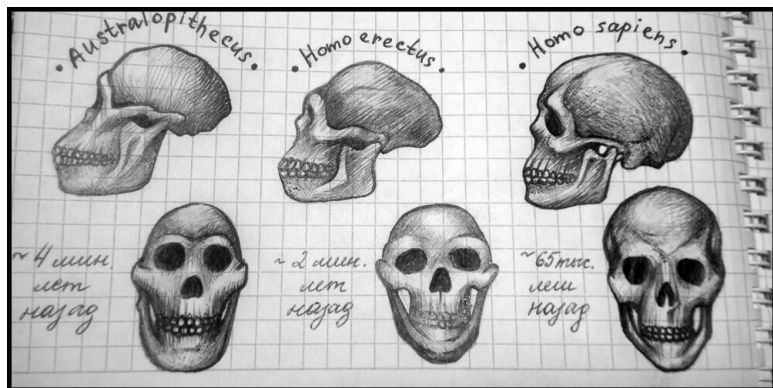 • Australopithecus •
• Homo erectus •
• Homo sapiens •
~ 4 млн.
лет
назад
~ 2 млн.
лет
назад
~ 65 тыс.
лет
назад